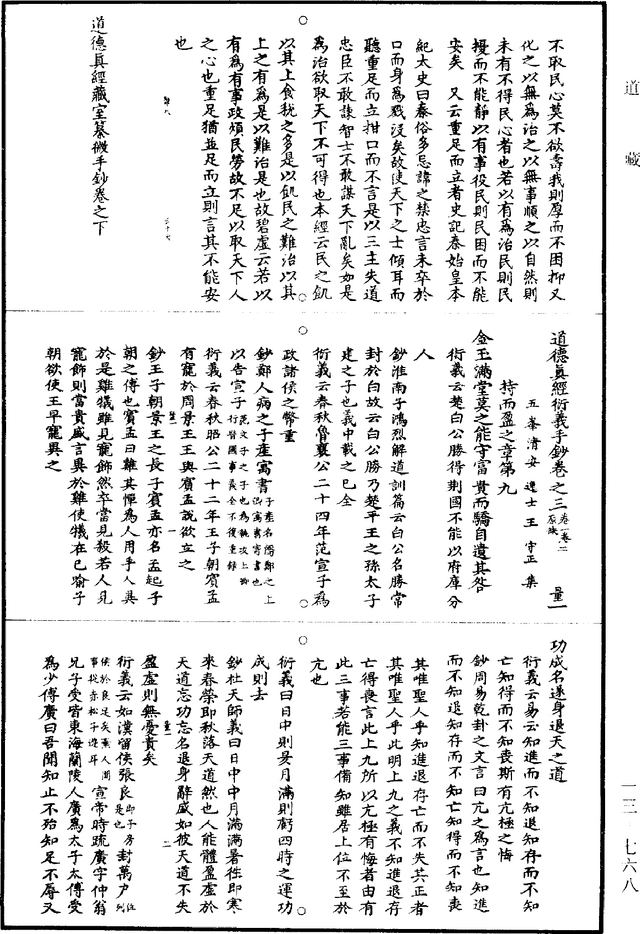 道藏
不取民心莫不欲壽我則厚而不困抑又
化之以無為治之以無事順之以自然則
未有不得民心者也若以有為治民則民
擾而不能靜以有事役民則民困而不能
安矣　又云重足而立者史記秦始皇本
紀太史曰秦俗多忌諱之禁忠言未卒於
口而身為戮沒矣故使天下之士傾耳而
聽重足而立拑口而不言是以三主失道
忠臣不敢諫智士不敢謀天下亂矣如是
為治欲取天下不可得也本經云民之飢
以其上食稅之多是以飢民之難治以其
上之有為是以難治是也故碧虛云若以
有為有事政煩民勞故不足以取天下人
之心也重足猶並足而立則言其不能安
也
道德真經藏室纂微手鈔卷之下
道德真經衍義手鈔卷之三 卷一卷二原缺 量一
五峯清安逸士王守正集
持而盈之章第九
金玉滿堂莫之能守富貴而驕自遺其咎
衍義云楚白公勝得荆國不能以府庫分
人
鈔淮南子鴻烈解道訓篇云白公名勝常
封於白故云白公勝乃楚平王之孫太子
建之子也義中載之已全
衍義云春秋魯襄公二十四年范宣子為
政諸侯之幣重
鈔鄭人病之子產寓書
以告宣子
衍義云春秋昭公二十二年王子朝賓孟
有寵於周景王王與賓孟說欲立之
鈔王子朝景王之長子賓孟亦名孟起子
朝之傅也賓孟曰雞其憚為人用乎人異
於是雞犧雖見寵飾然卒當見殺若人見
寵飾則當貴盛言異於雞使犧在已喻子
朝欲使王早寵異之
功成名遂身退天之道
衍義云易云知進而不知退知存而不知
亡知得而不知喪斯有亢極之悔
鈔周易乾卦之文言曰亢之為言也知進
而不知退知存而不知亡知得而不知喪
其唯聖人乎知進退存亡而不失其正者
其唯聖人乎此明上九之義不知進退存
亡得喪言此上九所以亢極有悔者由有
此三事若能三事備知雖居上位不至於
亢也
衍義曰日中則昃月滿則虧四時之運功
成則去
鈔杜天師義曰日中中月滿滿暑徃即寒
來春榮即秋落天道然也人能體盈虛於
天道忘功忘名退身辭盛如彼天道不失
盈虛則無憂責矣
衍義云如漢留侯張良 即子房是也 封萬户 位列
侯於良足矣棄人間事從赤松子遊耳 宣帝時疏廣字仲翁
兄子受皆東海蘭陵人廣為太子太傅受
為少傅廣曰吾聞知止不殆知足不辱又
一三—七六八